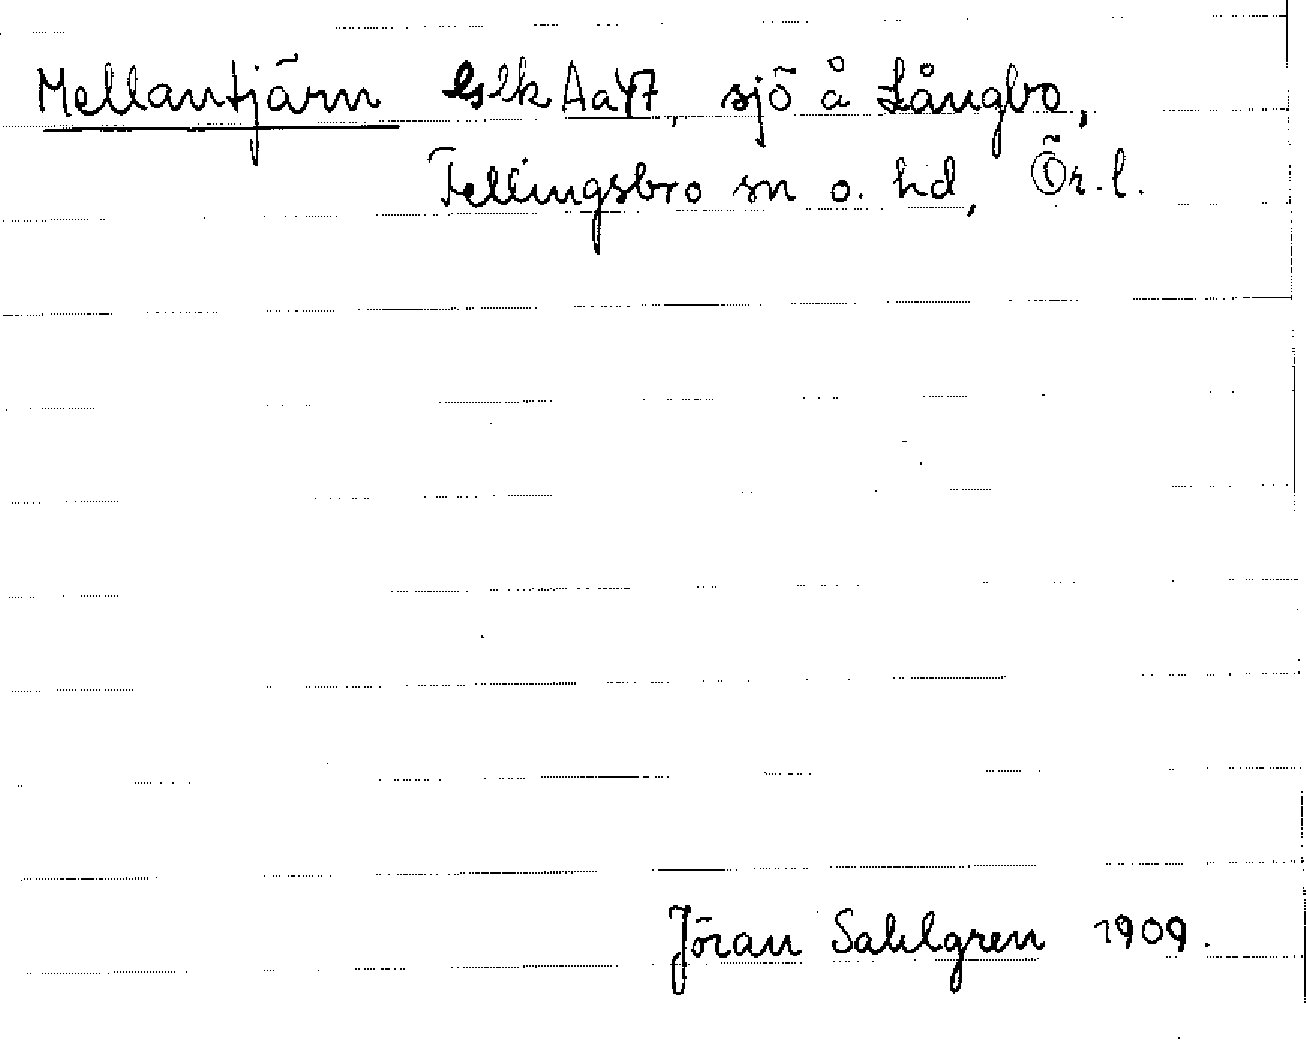 Mellantjärn Gslk Aa47, sjö å Långbo,
Fellingsbro sn o. hd, Ör. l.
Jöran Sahlgren 1909.